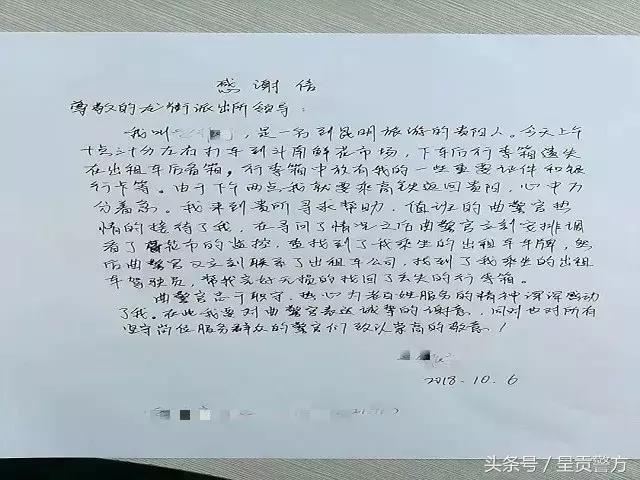 感谢信
尊敬的龙街派出所领导：
我叫，是一名到昆明旅游的贵阳人。今天上午
十点三十分左右打车到斗南鲜花市场，下车后行李箱遗失
在出租车后备箱。行李箱中放有我的一些重要证件和银
行卡等。由于下午两点我就要乘高铁返回贵阳，心中万
分着急。我来到贵所寻求帮助，值班的曲警官热
情的接待了我，在寻问了情况之后曲警官立刻安排调
看了花市的监控，查找到了我乘坐的出租车车牌，然
后曲警官又立刻联系了出租车公司，找到了我乘坐的出租
车驾驶员，帮我完好无损的找回了丢失的行李箱。
曲警官忠于职守，热心为老百姓服务的精神深深感动
了我。在此我要对曲警官表达诚挚的谢意，同时也对所有
坚守岗位服务群众的警官们致以崇高的敬意！
2018.10.6
头条号／呈贡警方